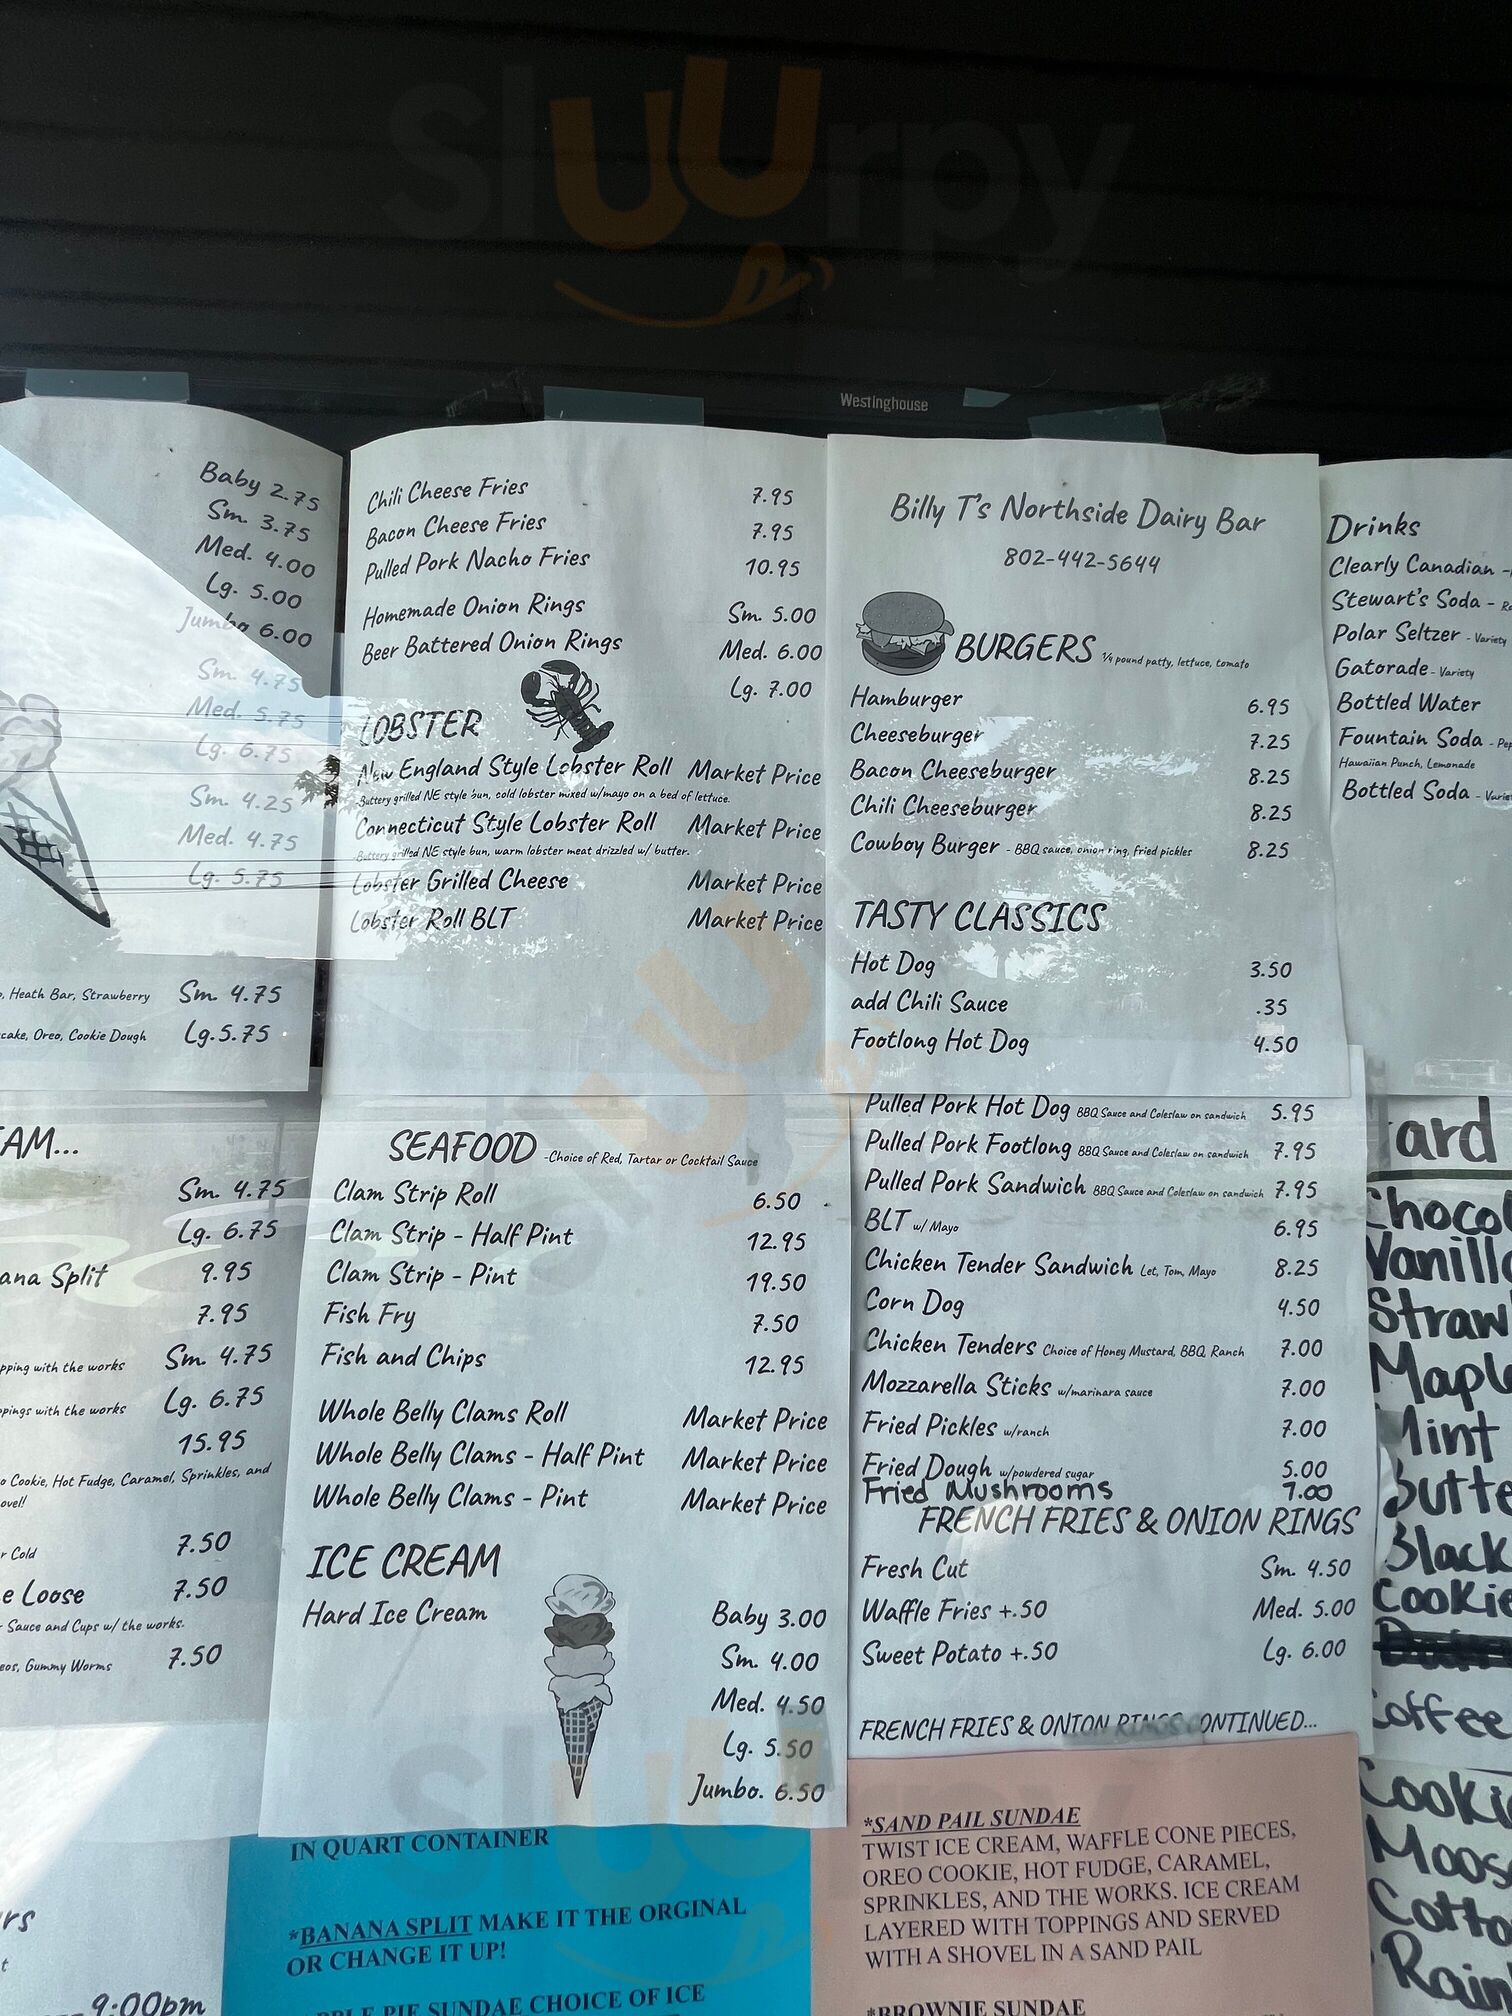 Sluurpy
Westinghouse
Baby 2.75
Sm. 3.75
Med. 4.00
Lg. 5.00
Jumbo 6.00
Sm. 4.75
Med. 5.75
Lg. 6.75
Sm. 4.25
Med. 4.75
Lg. 5.75
Heath Bar, Strawberry Sm. 4.75
Oreo, Cookie Dough Lg. 5.75
Chili Cheese Fries 7.95
Bacon Cheese Fries 7.95
Pulled Pork Nacho Fries 10.95
Homemade Onion Rings Sm. 5.00
Beer Battered Onion Rings Med. 6.00
Lg. 7.00
LOBSTER
New England Style Lobster Roll Market Price
Buttery grilled NE style bun, cold lobster mixed w/mayo on a bed of lettuce.
Connecticut Style Lobster Roll Market Price
Buttery grilled NE style bun, warm lobster meat drizzled w/ butter.
Lobster Grilled Cheese Market Price
Lobster Roll BLT Market Price
Billy T's Northside Dairy Bar
802-442-5644
BURGERS 1/4 pound patty, lettuce, tomato
Hamburger 6.95
Cheeseburger 7.25
Bacon Cheeseburger 8.25
Chili Cheeseburger 8.25
Cowboy Burger - BBQ sauce, onion ring, fried pickles 8.25
TASTY CLASSICS
Hot Dog 3.50
add Chili Sauce .35
Footlong Hot Dog 4.50
Drinks
Clearly Canadian -
Stewart's Soda -
Polar Seltzer - Variety
Gatorade - Variety
Bottled Water
Fountain Soda -
Hawaiian Punch, Lemonade
Bottled Soda -
Sm. 4.75
Lg. 6.75
Split 9.95
7.95
with the works Sm. 4.75
with the works Lg. 6.75
15.95
Cookie, Hot Fudge, Caramel, Sprinkles, and
Cold 7.50
Loose 7.50
Sauce and Cups w/ the works.
Gummy Worms 7.50
9:00pm
SEAFOOD -Choice of Red, Tartar or Cocktail Sauce
Clam Strip Roll 6.50
Clam Strip - Half Pint 12.95
Clam Strip - Pint 19.50
Fish Fry 7.50
Fish and Chips 12.95
Whole Belly Clams Roll Market Price
Whole Belly Clams - Half Pint Market Price
Whole Belly Clams - Pint Market Price
ICE CREAM
Hard Ice Cream Baby 3.00
Sm. 4.00
Med. 4.50
Lg. 5.50
Jumbo. 6.50
Pulled Pork Hot Dog BBQ Sauce and Coleslaw on sandwich 5.95
Pulled Pork Footlong BBQ Sauce and Coleslaw on sandwich 7.95
Pulled Pork Sandwich BBQ Sauce and Coleslaw on sandwich 7.95
BLT w/ Mayo 6.95
Chicken Tender Sandwich Let, Tom, Mayo 8.25
Corn Dog 4.50
Chicken Tenders Choice of Honey Mustard, BBQ, Ranch 7.00
Mozzarella Sticks w/marinara sauce 7.00
Fried Pickles w/ranch 7.00
Fried Dough w/powdered sugar 5.00
Fried Mushrooms 7.00
FRENCH FRIES & ONION RINGS
Fresh Cut Sm. 4.50
Waffle Fries +.50 Med. 5.00
Sweet Potato +.50 Lg. 6.00
FRENCH FRIES & ONION RINGS CONTINUED...
IN QUART CONTAINER
*BANANA SPLIT MAKE IT THE ORGINAL
OR CHANGE IT UP!
PIE SUNDAE CHOICE OF ICE
*SAND PAIL SUNDAE
TWIST ICE CREAM, WAFFLE CONE PIECES,
OREO COOKIE, HOT FUDGE, CARAMEL,
SPRINKLES, AND THE WORKS. ICE CREAM
LAYERED WITH TOPPINGS AND SERVED
WITH A SHOVEL IN A SAND PAIL
*BROWNIE SUNDAE
Maple
Mint
Black
Coffee